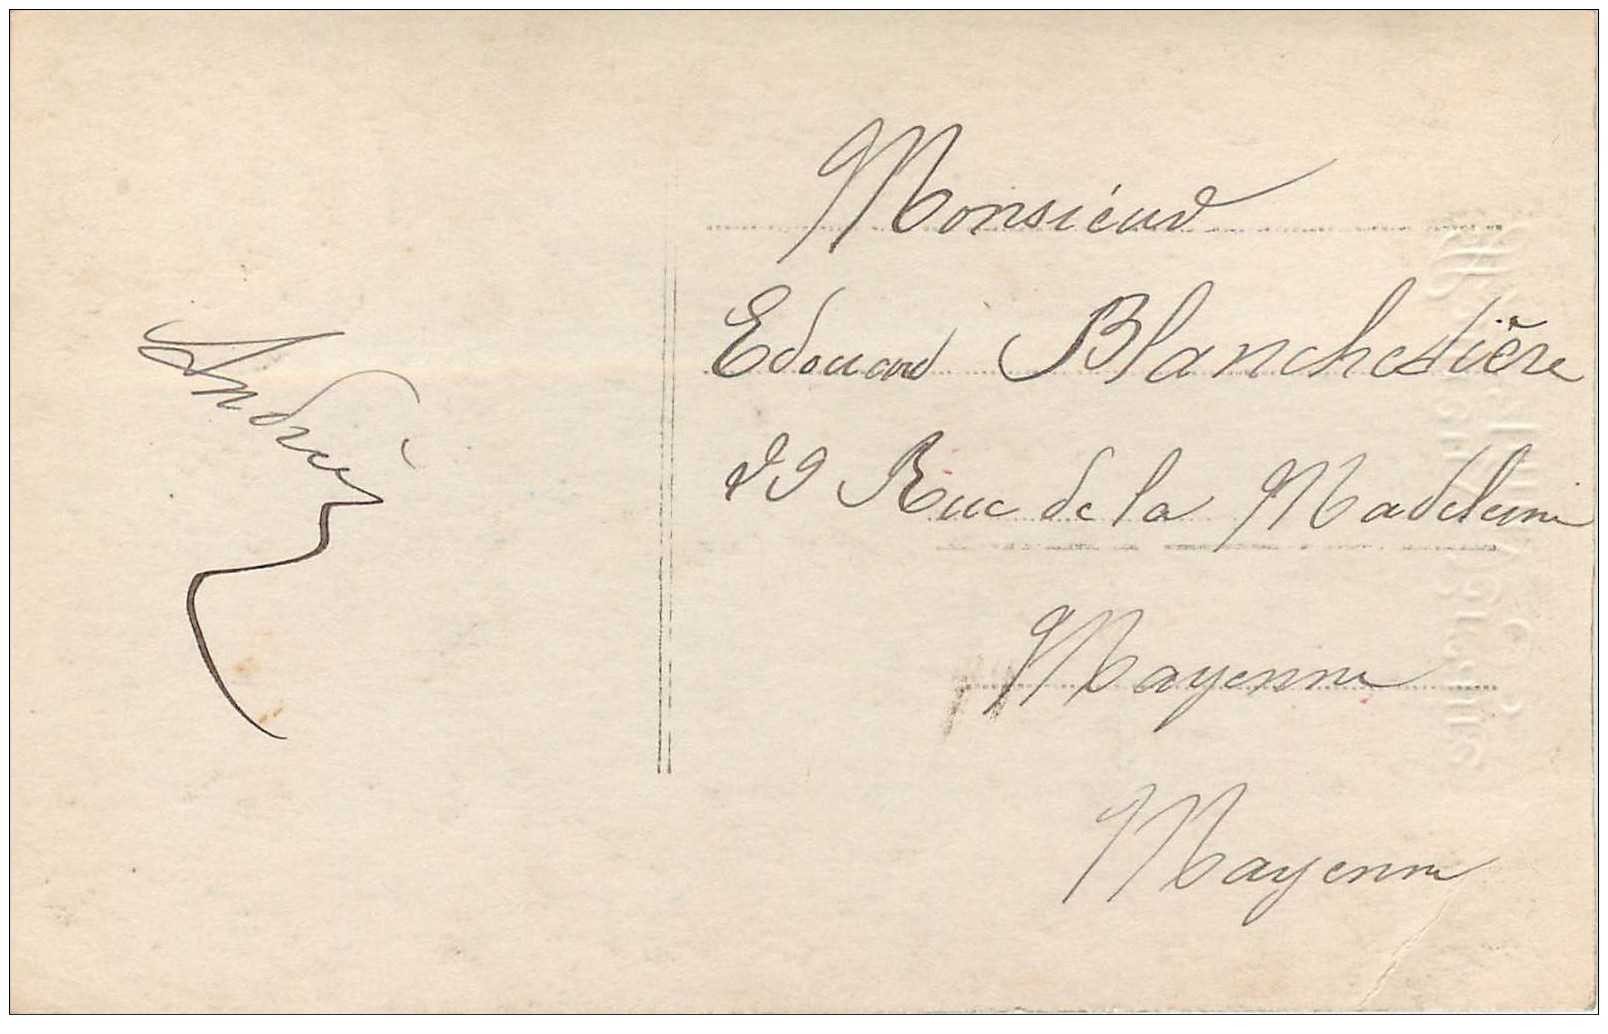 André
Monsieur
Edouard Blanchetière
29 Rue de la Madeleine
Mayenne
Mayenne